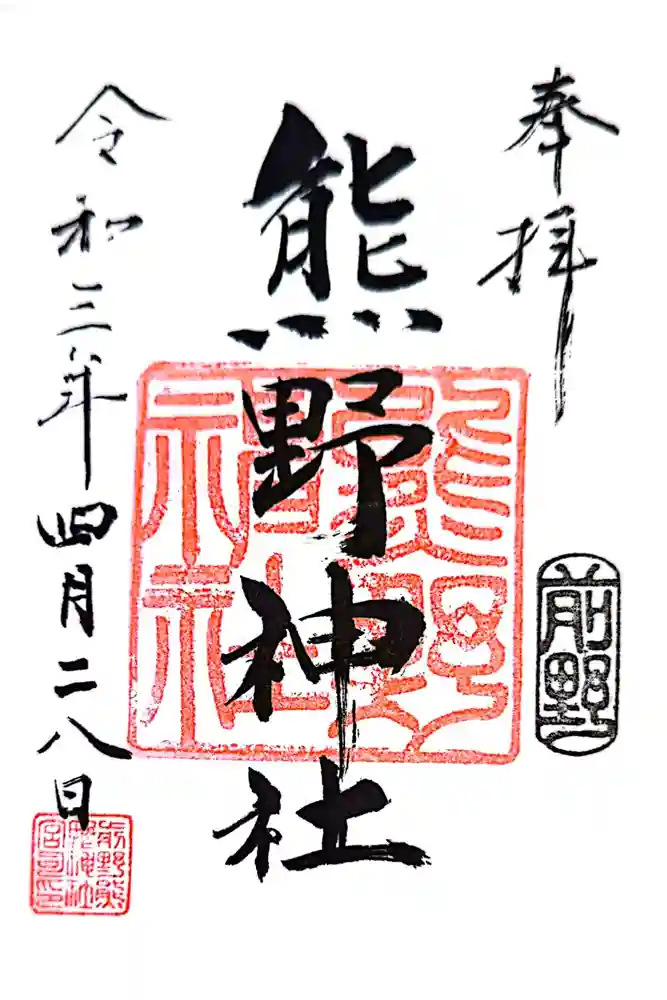 奉拝
前野
熊野神社
熊野神社
令和三年四月二八日
前野熊
野神社
宮司印